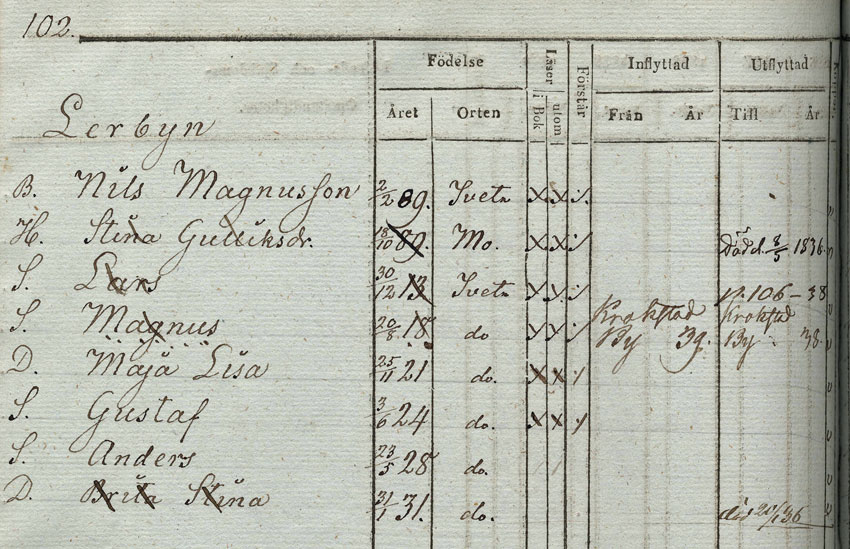 102.
Födelse Läser Förstår Inflyttad Utflyttad
Året Orten i Bok utom Från År Till År
Lerbyn
B. Nils Magnusson 2/2 89. Tveta x x ⁒
H. Stina Gulliksdr. 18/10 89. Mo. x x ⁒ Död d. 8/5 1836.
S. Lars 30/12 13 Tveta x x ⁒ p. 106 - 38
S. Magnus 20/8 18 do x x ⁒ Krokstad By 39. Krokstad By 38.
D. Maja Lisa 25/11 21 do. x x ⁒
S. Gustaf 3/6 24 do. x x ⁒
S. Anders 23/5 28 do.
D. Brita Stina 31/1 31. do. död 36